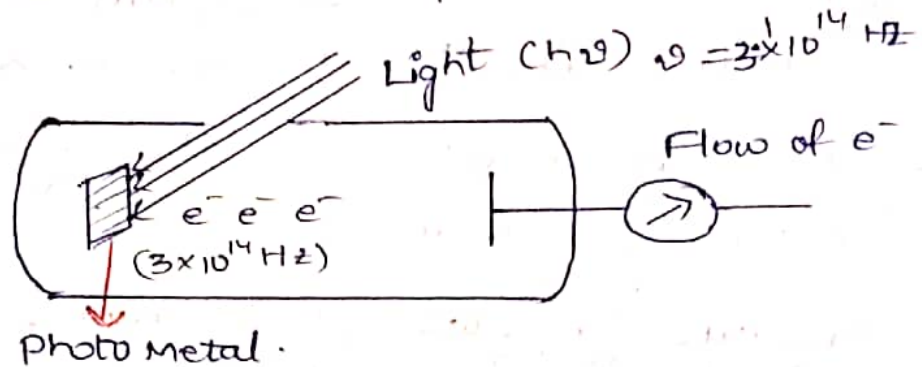 Light (hυ) υ = 3.1×10¹⁴ Hz
Flow of e⁻
e⁻ e⁻ e⁻
(3×10¹⁴ Hz)
Photo Metal.